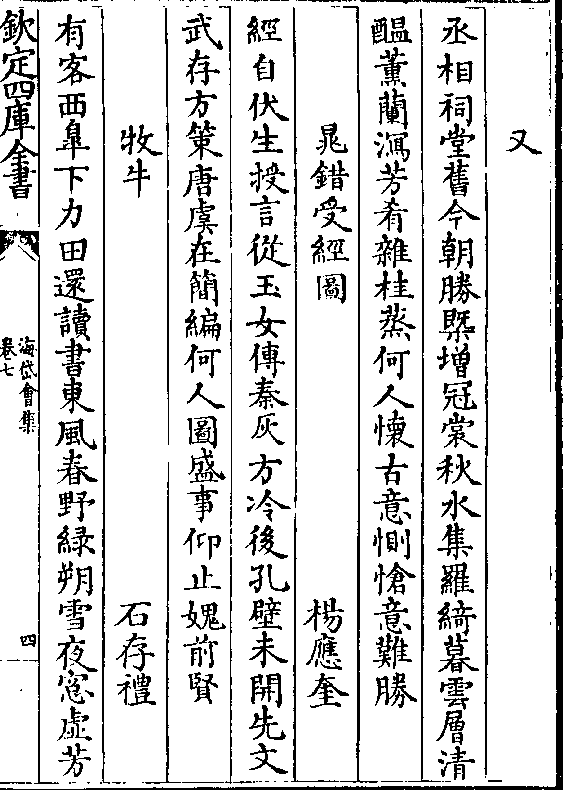 又
丞相祠堂舊今朝勝槩增冠裳秋水集羅綺暮雲層清
醖薰蘭㵼芳肴雜桂蒸何人懷古意惻愴意難勝
晁錯受經圖 楊應奎
經自伏生授言從玉女傳秦灰方冷後孔壁未開先文
武存方策唐虞在簡編何人圖盛事仰止媿前賢
牧牛 石存禮
有客西臯下力田還讀書東風春野綠朔雪夜窓虛芳
欽定四庫全書
海岱會集
卷七
四